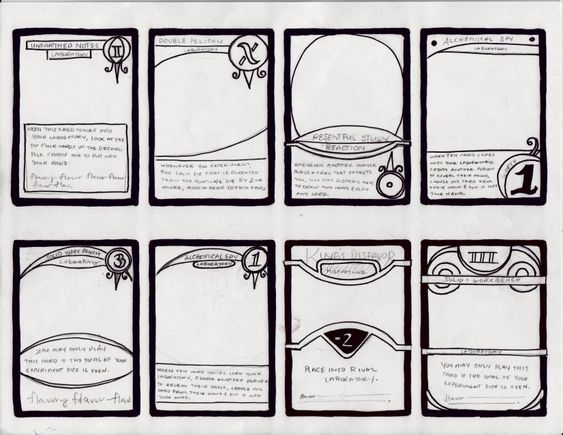 UNEARTHED NOTES
II
LABORATORY
WHEN THIS CARD COMES INTO
YOUR LABORATORY, LOOK AT THE
TOP FIVE CARDS OF THE DISCARD
PILE. CHOOSE ONE TO PUT INTO
YOUR HAND.
flavory flavor flavor flavor
flavor flav.
DOUBLE PELICAN
LABORATORY
X
WHENEVER YOU EXPERIMENT,
FOR EACH DIE THAT IS GREATER
THAN THE ROUTINE DIE BY 2 OR
MORE, ADD A   TO THIS CARD
RESENTFUL STUDY
REACTION
WHENEVER ANOTHER PLAYER
PLAYS A CARD THAT EFFECTS
YOU, YOU MAY DISCARD   
TO DRAW TWO CARDS & PLAY
ANY CARD.
ALCHEMICAL SPY
LABORATORY
WHEN THIS CARD COMES
INTO YOUR LABORATORY,
CHOOSE ANOTHER PLAYER
TO REVEAL THEIR HAND,
CHOOSE ONE CARD FROM
THEIR HAND & PUT IT INTO
THIS HAND.
1
SOLID WORKBENCH
3
LABORATORY
YOU MAY ONLY PLAY
THIS CARD IF THE TOTAL OF YOUR
EXPERIMENT DICE IS EVEN.
flavory flavor flav
ALCHEMICAL SPY
1
LABORATORY
WHEN THIS CARD COMES INTO YOUR
LABORATORY, CHOOSE ANOTHER PLAYER
TO REVEAL THEIR HAND, CHOOSE ONE
CARD FROM THEIR HAND & PUT IT INTO
YOUR HAND.
KING'S DISFAVOR
MISFORTUNE
-2
PLACE INTO RIVAL
LABORATORY.
III
SOLID WORKBENCH
LABORATORY
YOU MAY ONLY PLAY THIS
CARD IF THE TOTAL OF YOUR
EXPERIMENT DICE IS EVEN.